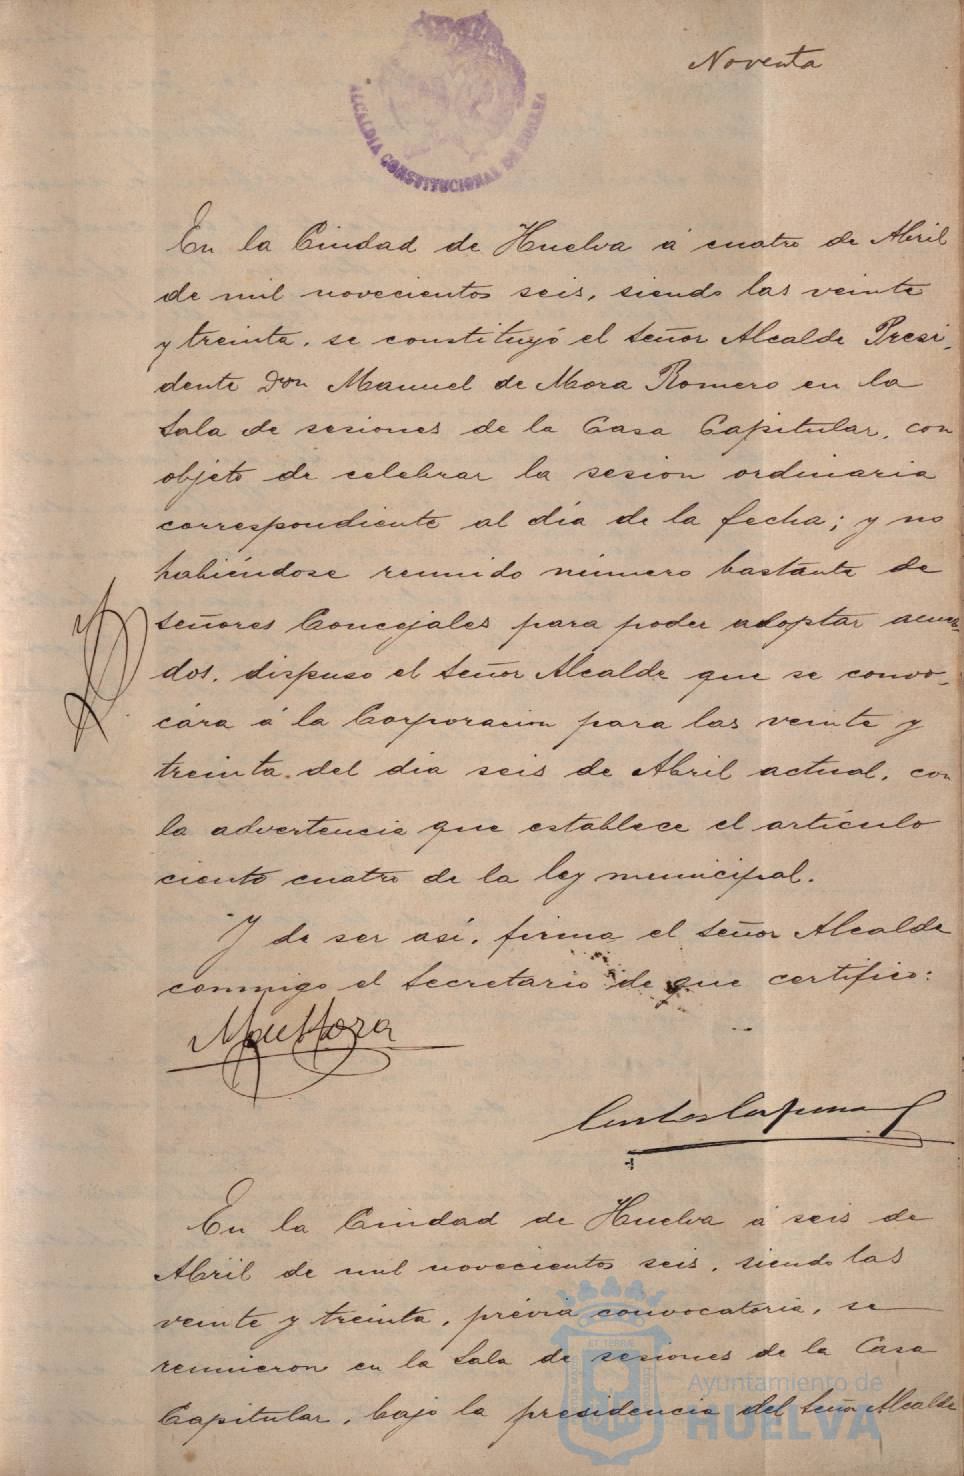 Noventa
ALCALDIA CONSTITUCIONAL DE HUELVA
En la Ciudad de Huelva á cuatro de Abril
de mil novecientos seis, siendo las veinte
y treinta, se constituyó el señor Alcalde Presi-
dente Don Manuel de Mora Romero en la
Sala de sesiones de la Casa Capitular, con
objeto de celebrar la sesion ordinaria
correspondiente al día de la fecha; y no
habiéndose reunido número bastante de
señores Concejales para poder adoptar acuer-
dos, dispuso el señor Alcalde que se convo-
cára á la Corporacion para las veinte y
treinta del dia seis de Abril actual, con
la advertencia que establece el artículo
ciento cuatro de la ley municipal.
Y de ser así, firma el señor Alcalde
conmigo el Secretario de que certifico:
En la Ciudad de Huelva á seis de
Abril de mil novecientos seis, siendo las
veinte y treinta, prévia convocatoria, se
reunieron en la Sala de sesiones de la Casa
Capitular, bajo la presidencia del Señor Alcalde
Ayuntamiento de
HUELVA